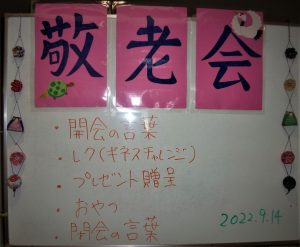 敬老会
・開会の言葉
・レク(ギネスチャレンジ)
・プレゼント贈呈
・おやつ
・閉会の言葉
2022.9.14